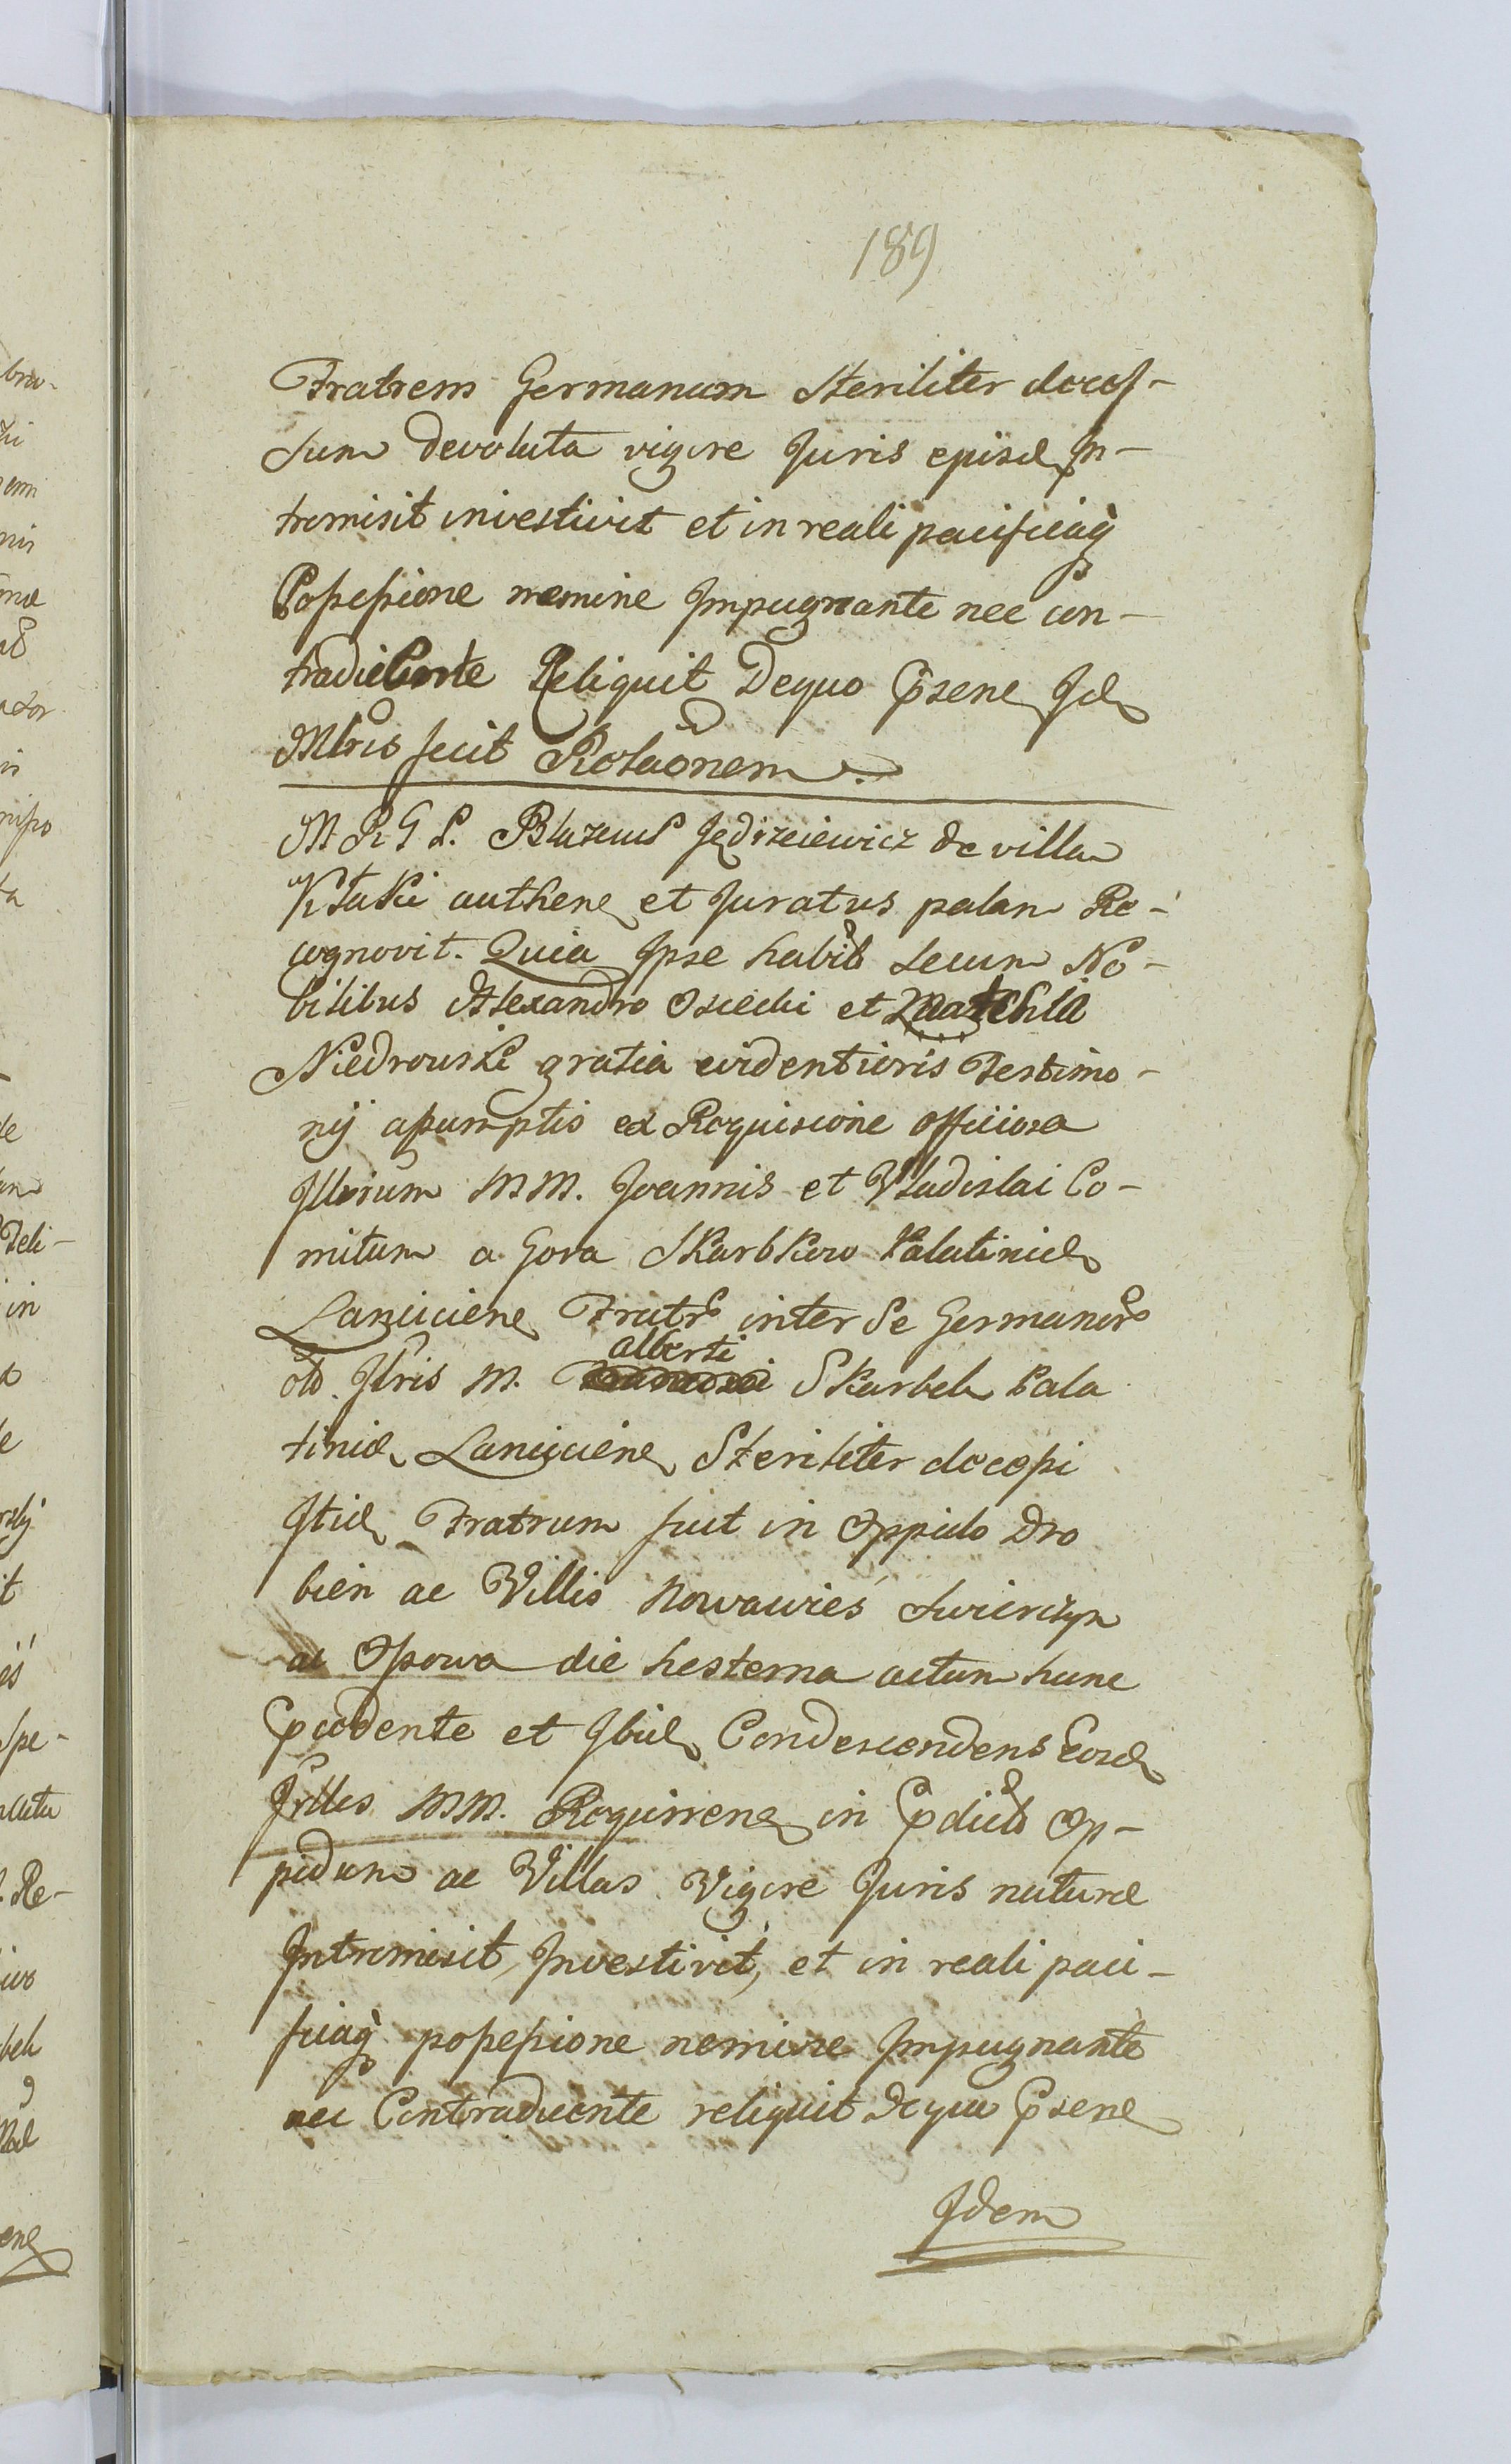 189
Fratrem Germanum steriliter deces-
sum devoluta vigore Juris epised In-
tromisit investivit et in reali pacificaq
Possessione nemine Impugnante nec con-
tradicente Reliquit Dequo Psene Id
Mtris fecit Relaõnem
M R G P. Blazeius Jędrzeiewicz de villa
Kłaki authene et Juratus palam Re-
cognovit. Quia Ipse habib secum No-
bilibus Alexandro Osiecki et
Niedrouski gratia evidentioris Testimo-
nij assumptis ex Requisicione officiosa
Illrium MM. Joannis et Vladislai Co-
mitum a Gora Skarbkow Palatinid
Lanciciene Fratr inter se Germanor
ob Illris M. alberti Skarbek Pala
tinid Lanciciene Steriliter decessi
Itid Fratrum fuit in Oppido Dro
bien ac Villis Nowawieś Swierczyn
ac Ossowa die hesterna actum hunc
Pcedente et Ibid Condescendens Eosd
Illes MM. Requirene in Pdictb Op-
pidum ac Villas Vigore Juris nature
Intromisit, Investivit, et in reali paci-
ficaq possessione nemine Impugnante
nec Contradicente reliquit Dequo Psene
Idem